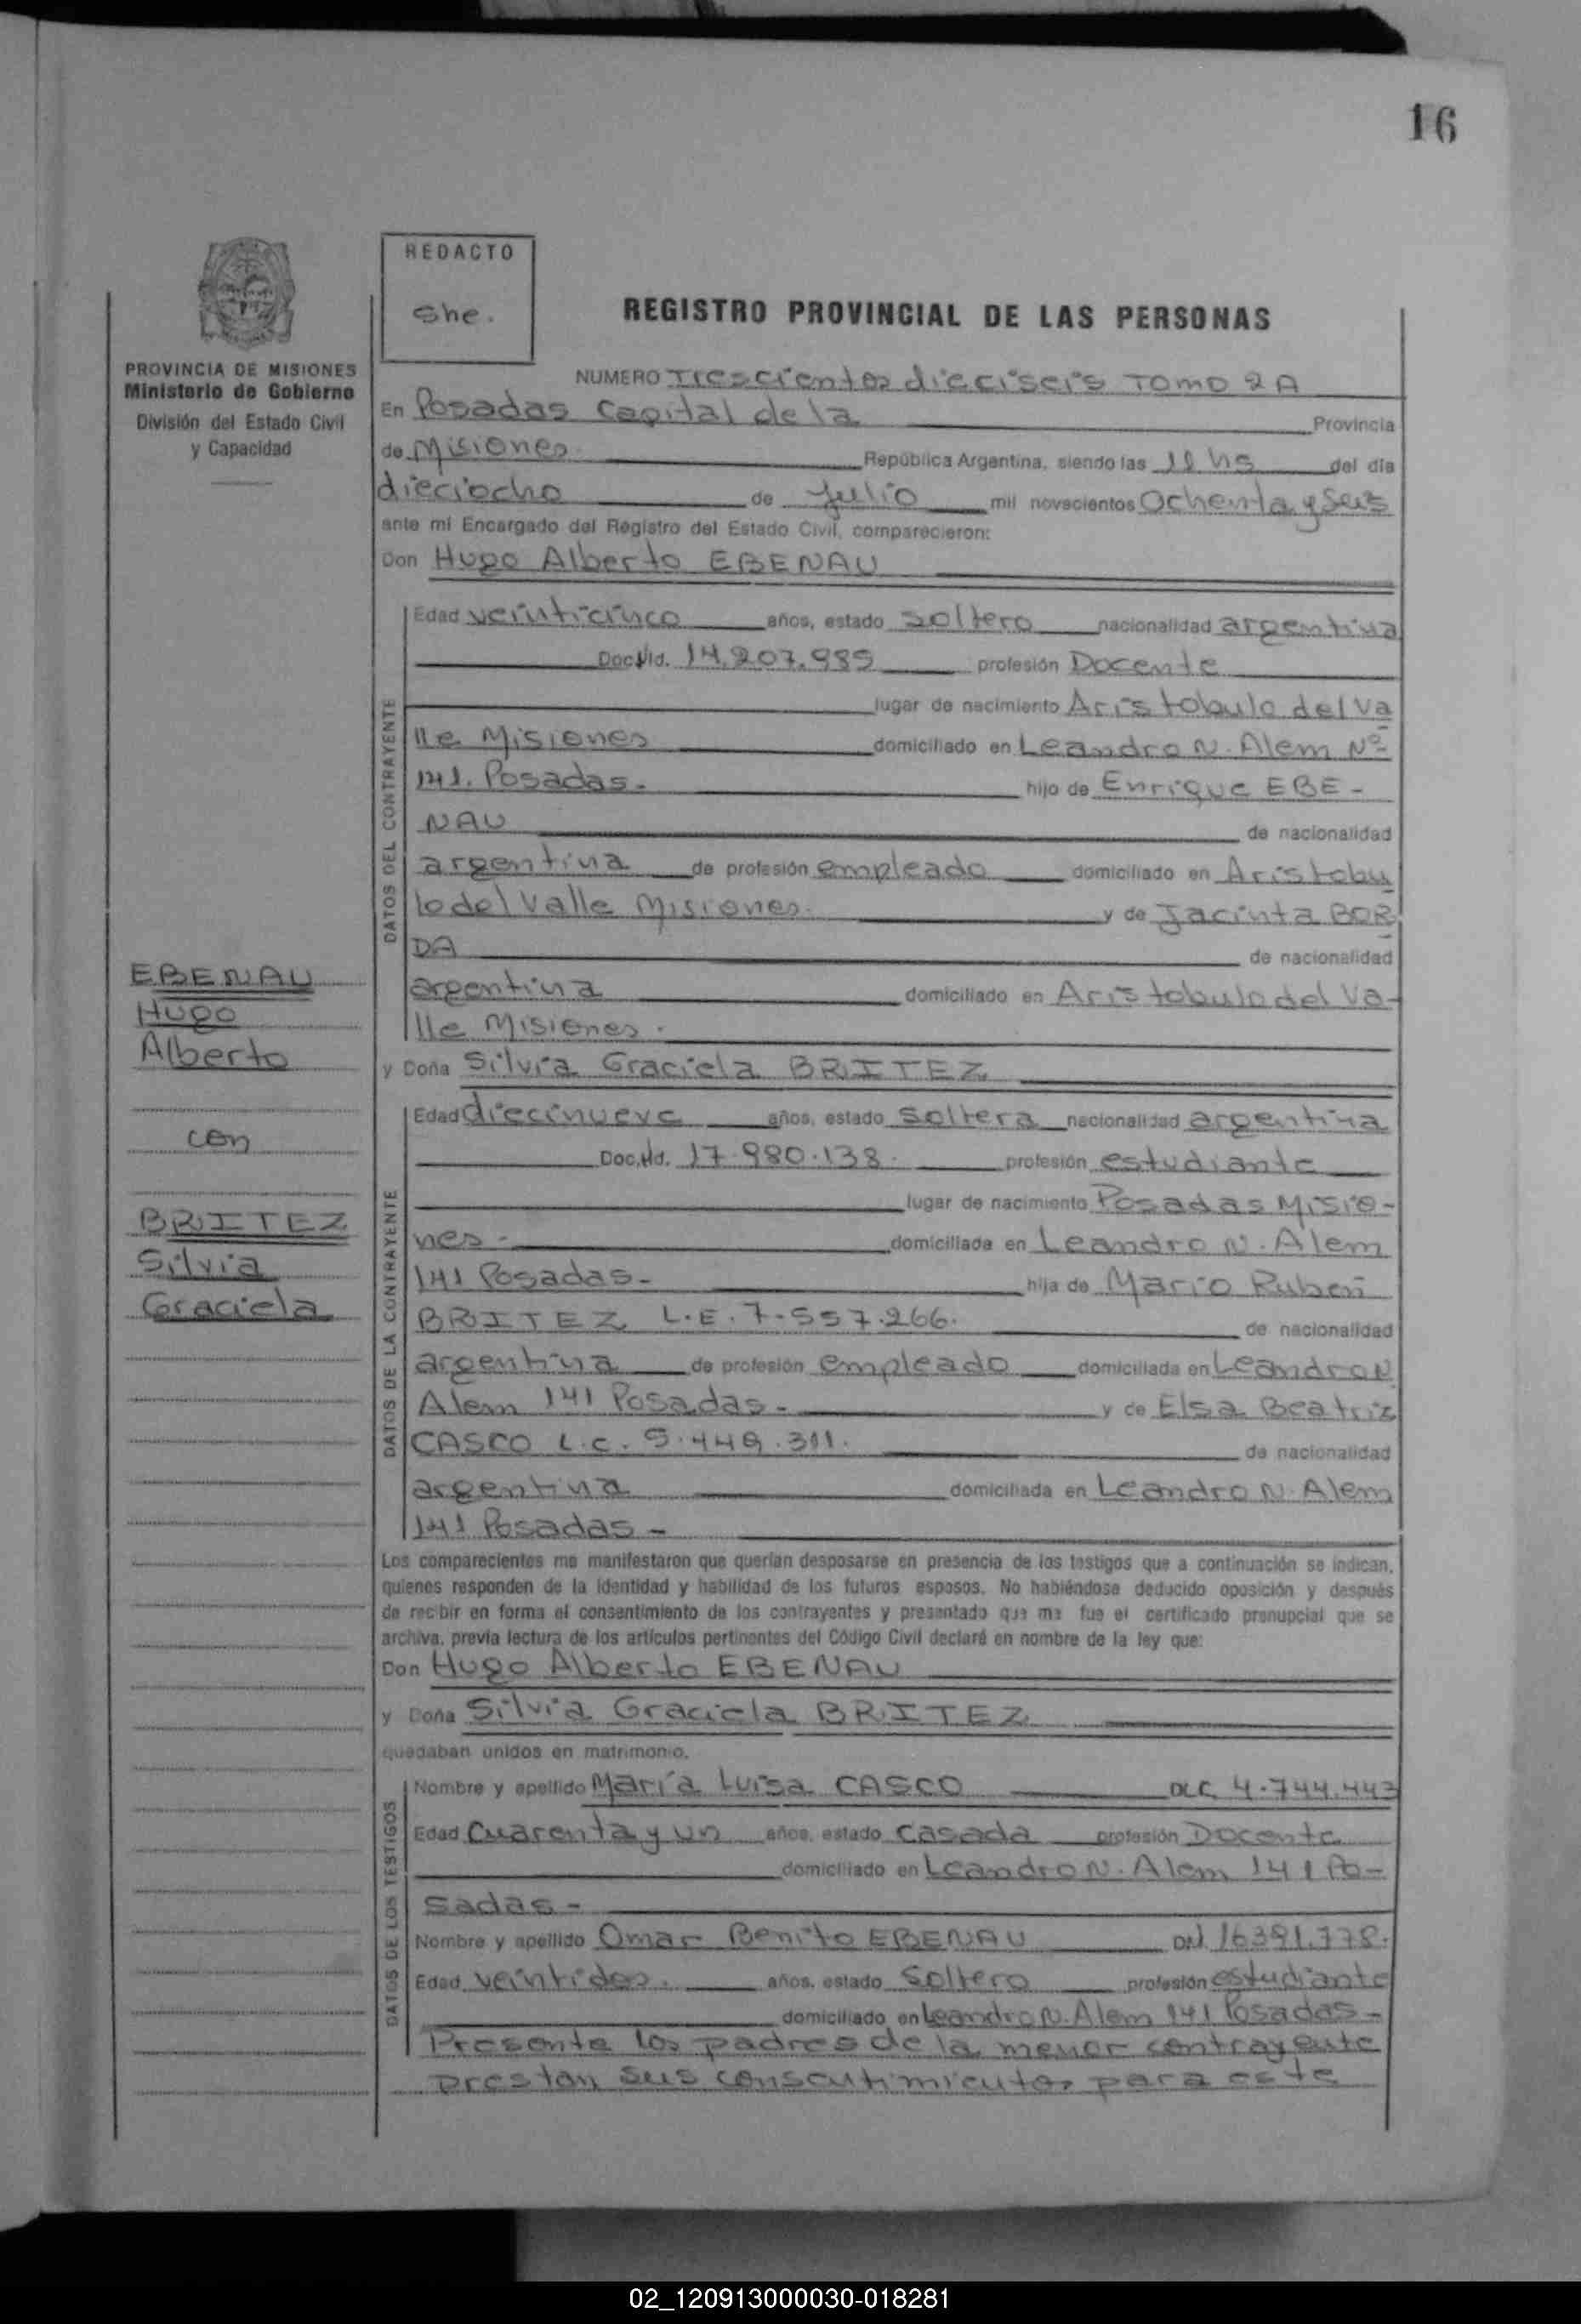 16
REDACTO
She.
REGISTRO PROVINCIAL DE LAS PERSONAS
PROVINCIA DE MISIONES
Ministerio de Gobierno
División del Estado Civil
y Capacidad
NUMERO Trescientos dieciseis TOMO 2 A
En Posadas Capital de la Provincia
de Misiones República Argentina, siendo las hs del día
dieciocho de Julio mil novecientos Ochenta y Seis
ante mí Encargado del Registro del Estado Civil, comparecieron:
Don Hugo Alberto EBENAU
Edad veinticinco años, estado soltero nacionalidad argentina
Doc. Nd. 14.207.989 profesión Docente
lugar de nacimiento Aristobulo del Va
lle Misiones domiciliado en Leandro N. Alem Nº
141. Posadas- hijo de Enrique EBE-
NAU de nacionalidad
argentina de profesión empleado domiciliado en Aristobu
lo del Valle Misiones. y de Jacinta BOR
DA de nacionalidad
argentina domiciliado en Aristobulo del Va-
lle Misiones.
y Doña Silvia Graciela BRITEZ
Edad diecinueve años, estado soltera nacionalidad argentina
Doc. Nd. 17.980.138. profesión estudiante
lugar de nacimiento Posadas Misio-
nes- domiciliada en Leandro N. Alem
141 Posadas- hija de Mario Ruben
BRITEZ L.E. 7.557.266. de nacionalidad
argentina de profesión empleado domiciliada en Leandro N
Alem 141 Posadas- y de Elsa Beatriz
CASCO L.C. 5.449.311. de nacionalidad
argentina domiciliada en Leandro N. Alem
141 Posadas-
DATOS DEL CONTRAYENTE
DATOS DE LA CONTRAYENTE
EBENAU
Hugo
Alberto
con
BRITEZ
Silvia
Graciela
Los comparecientes me manifestaron que querían desposarse en presencia de los testigos que a continuación se indican,
quienes responden de la identidad y habilidad de los futuros esposos. No habiéndose deducido oposición y después
de recibir en forma el consentimiento de los contrayentes y presentado que me fue el certificado prenupcial que se
archiva, previa lectura de los artículos pertinentes del Código Civil declaré en nombre de la ley que:
Don Hugo Alberto EBENAU
y Doña Silvia Graciela BRITEZ
quedaban unidos en matrimonio.
Nombre y apellido María Luisa CASCO DLC 4.744.443
Edad Cuarenta y un años, estado casada profesión Docente
domiciliado en Leandro N. Alem 141 Po-
sadas-
Nombre y apellido Omar Benito EBENAU 16391.778.
Edad veintidos. años, estado Soltero profesión estudiante
domiciliado en Leandro N. Alem 141 Posadas-
DATOS DE LOS TESTIGOS
Presente los padres de la menor contrayente
prestan sus consentimientos para este
02_120913000030-018281